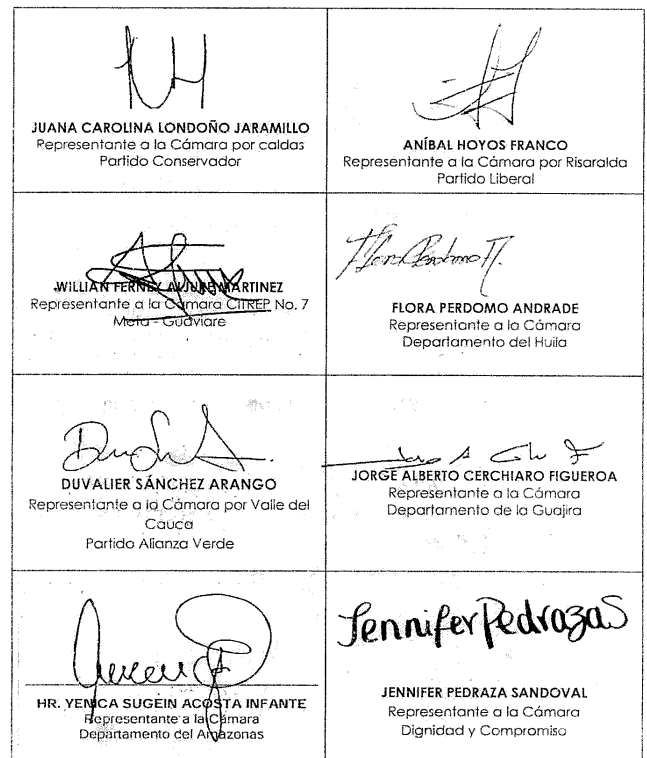 JUANA CAROLINA LONDOÑO JARAMILLO
Representante a la Cámara por caldas
Partido Conservador
ANÍBAL HOYOS FRANCO
Representante a la Cámara por Risaralda
Partido Liberal
WILLIAN FERNEY ALJURE MARTINEZ
Representante a la Cámara CITREP No. 7
Meta - Guaviare
FLORA PERDOMO ANDRADE
Representante a la Cámara
Departamento del Huila
DUVALIER SÁNCHEZ ARANGO
Representante a la Cámara por Valle del
Cauca
Partido Alianza Verde
JORGE ALBERTO CERCHIARO FIGUEROA
Representante a la Cámara
Departamento de la Guajira
HR. YENICA SUGEIN ACOSTA INFANTE
Representante a la Cámara
Departamento del Amazonas
Jennifer Pedraza S
JENNIFER PEDRAZA SANDOVAL
Representante a la Cámara
Dignidad y Compromiso